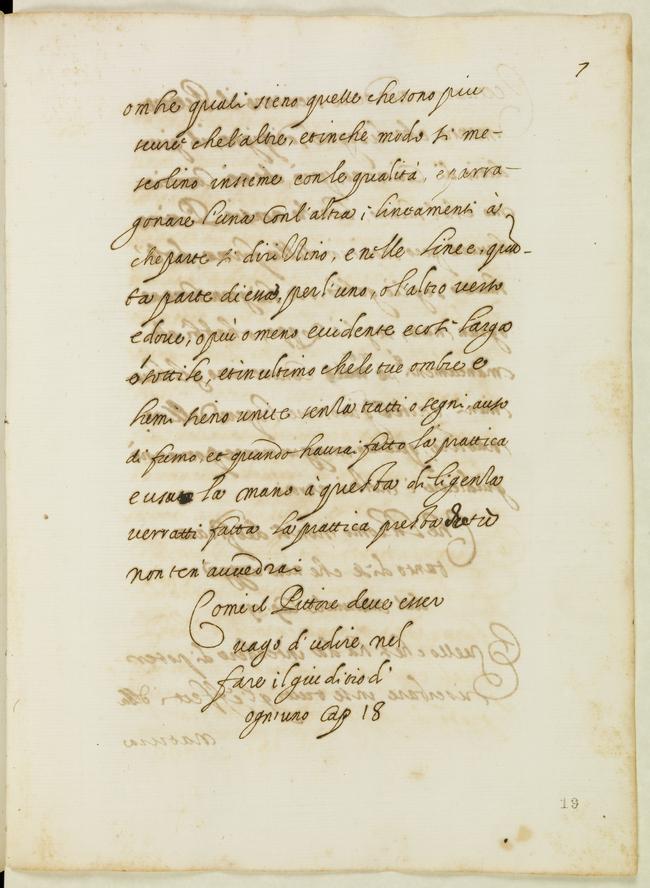 7
ombre quali sieno quelle che sono piu
scure che l'altre, et inche modo si me-
scolino insieme con le qualità, e parra-
gonare l'una con l'altra; i lineamenti à
che parte si dirizzino, e nelle linee, quā-
ta parte di essa, per l'uno, o l'altro verso
e dove, o più o meno evidente e cosi larga
ó sottile, et in ultimo che le tue ombre e
lumi sieno unite senza tratti o segni, auso
di fumo et quando haurai fatto la prattica
e la mano à questa diligenza
verratti fatta la prattica presta che tù
non ten'avvedrai
Come il Pittore deve esser
vago d'udire nel
fare il giuditio d'
ogni uno Cap 18
19